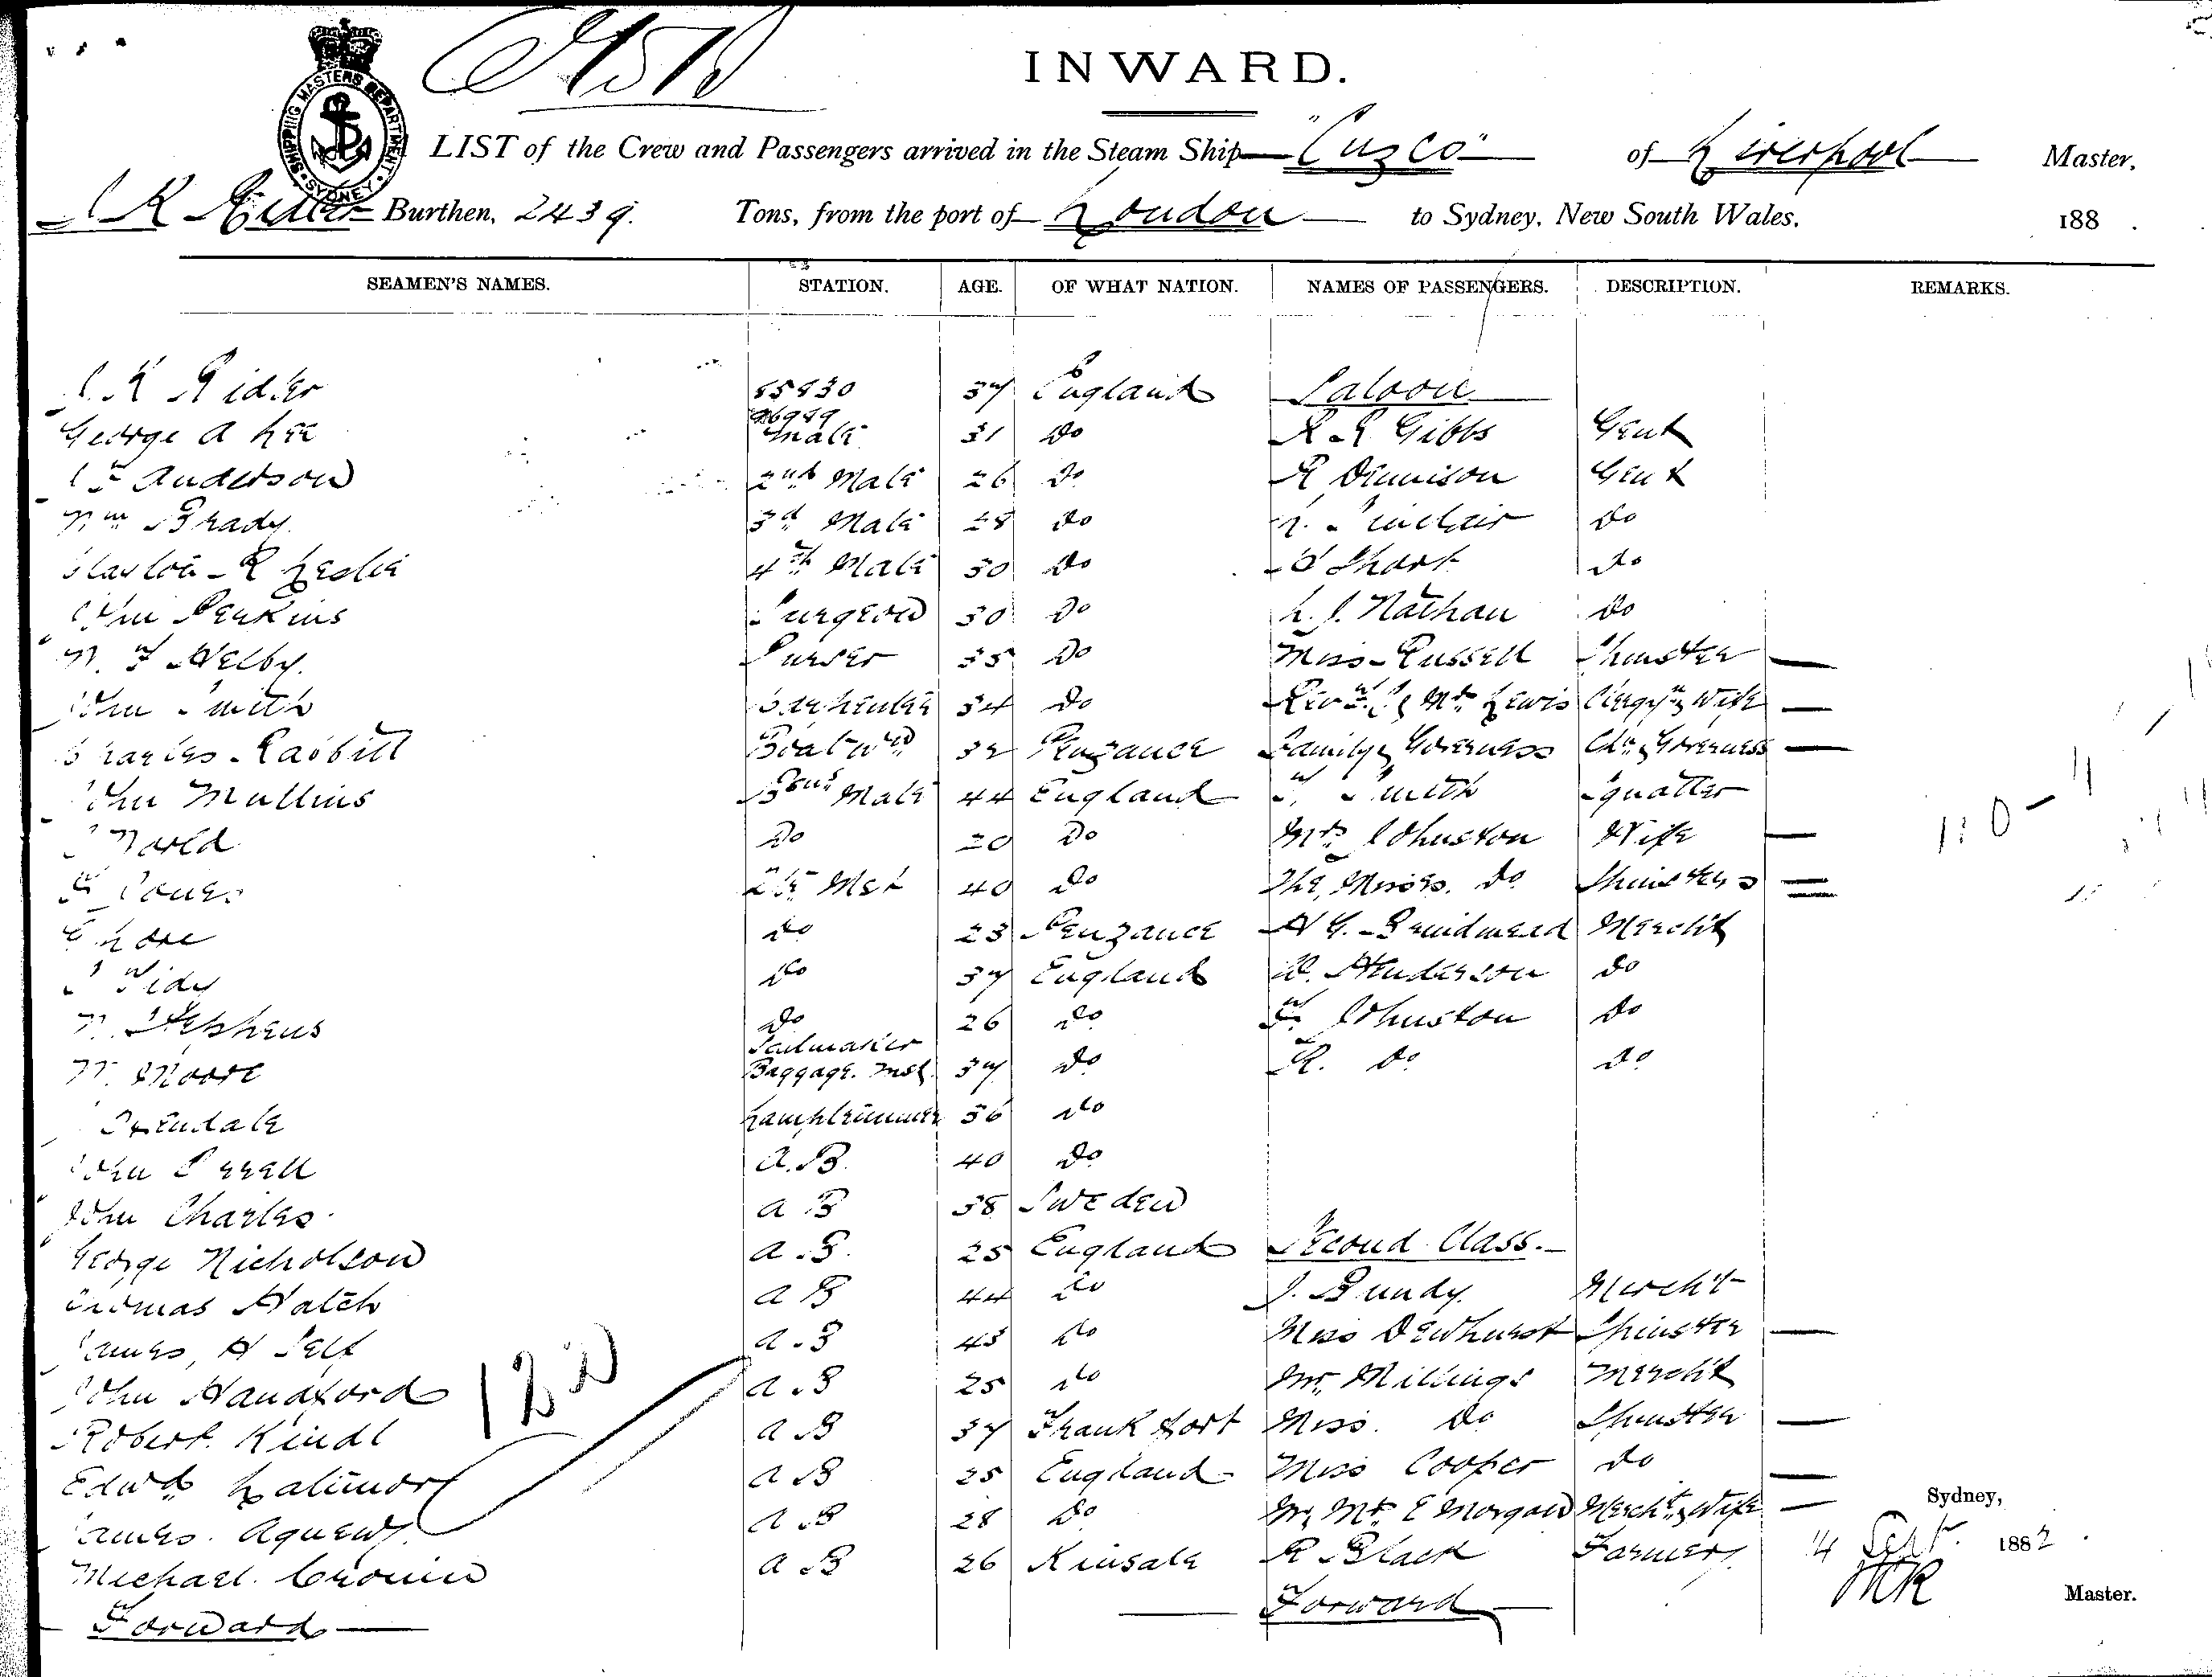 INWARD.
SHIPPING MASTERS DEPARTMENT SYDNEY
LIST of the Crew and Passengers arrived in the Steam Ship "Cuzco" of Liverpool Master,
Burthen, 2439. Tons, from the port of London to Sydney, New South Wales, 188 .
SEAMEN'S NAMES. STATION. AGE. OF WHAT NATION. NAMES OF PASSENGERS. DESCRIPTION. REMARKS.
J. K Rider 37 England Saloon
George A Lee Mate 31 Do Gibbs Gent
Anderson 2nd Mate 26 Do R Dennison Gent
Wm Brady. 3d Mate 28 Do Sinclair Do
R Leslie 4th Mate 30 Do Short Do
John Perkins Surgeon 30 Do L. J. Nathan Do
W. F Welby. Purser 35 Do Miss Russell Spinster
John Smith Carpenter 34 Do Revd & Mrs Lewis Clergyn & Wife
Charles Boatwn 32 Penzance Family & Governess Chn & Governess
John Mullins Bsns Mate 44 England Smith Squatter
Do 20 Do Mrs Johnston Wife
Jones Mst 40 Do The Misses. Do Spinsters
Do 23 Penzance Mercht
J Tidy Do 37 England Henderson Do
W. Stephens Do 26 Do Johnston Do
Sailmaker
W. Moore Baggage. Mst. 37 Do R. Do Do
Lamptrimmer 36 Do
John A.B. 40 Do
John Charles A B 38 Sweden
George Nicholson A.B. 25 England Second Class.
Thomas Hatch A B 44 Do J. Bundy. Mercht
James, H Self A.B 43 Do Miss Dewhurst Spinster
John Handford A.B 25 Do Mr. Millings Mercht
Robert Kindl A B 37 Frankfort Miss. Do Spinster
Edwd Latimore A B 25 England Miss Cooper Do
James. Agnew A.B 28 Do Mr, Mrs E Morgan Mercht & Wife
Michael. Cronin A B 26 Kinsale R Black Farmer
Forward Forward
120
Sydney,
14 Sept 1882 .
Master.